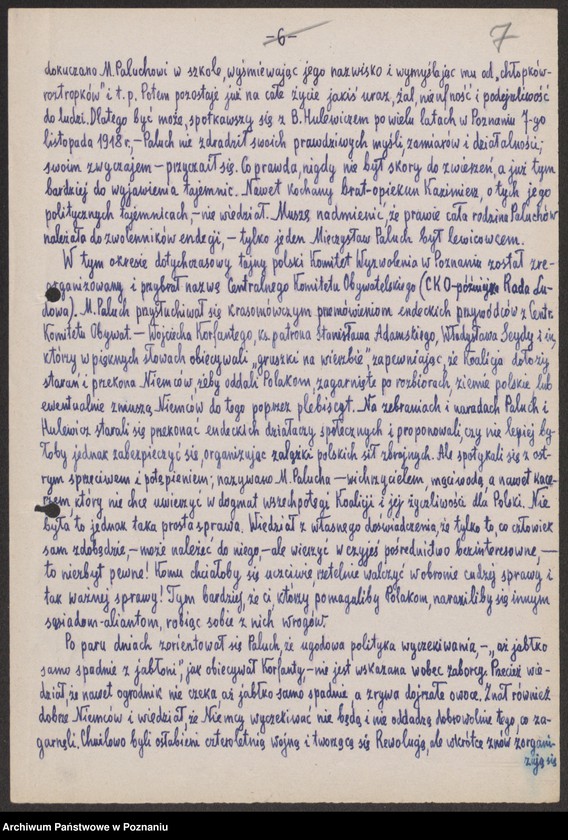 -6-
7
dokuczano M. Paluchowi w szkole, wyśmiewając jego nazwisko i wymyślając mu od „chłopków-
roztropków” i t.p. Potem pozostaje już na całe życie jakiś uraz, żal, nieufność i podejrzliwość
do ludzi. Dlatego być może, spotkawszy się z B. Hulewiczem po wielu latach w Poznaniu 7-go
listopada 1918 r. – Paluch nie zdradził swoich prawdziwych myśli, zamiarów i działalności;
swoim zwyczajem – przyczaił się. Co prawda, nigdy nie był skory do zwierzeń a już tym
bardziej do wyjawienia tajemnic. Nawet kochany brat-opiekun Kazimierz, o tych jego
politycznych tajemnicach, – nie wiedział. Muszę nadmienić, że prawie cała rodzina Paluchów
należała do zwolenników endecji, – tylko jeden Mieczysław Paluch był lewicowcem.
W tym okresie dotychczasowy tajny polski Komitet Wyzwolenia w Poznaniu został zre-
organizowany i przybrał nazwę Centralnego Komitetu Obywatelskiego (CKO-później Rada Lu-
dowa). M. Paluch przysłuchiwał się krasomówczym przemówieniom endeckich przywódców z Centr.
Komitetu Obywat. – Wojciecha Korfantego, ks. patrona Stanisława Adamskiego, Władysława Seydy i in,
którzy w pięknych słowach obiecywali „gruszki na wierzbie”, zapewniając, że Koalicja dołoży
starań i przekona Niemców, żeby oddali Polakom, zagarnięte po rozbiorach, ziemie polskie lub
ewentualnie zmuszą Niemców do tego poprzez plebiscyt. Na zebraniach i naradach Paluch i
Hulewicz starali się przekonać endeckich działaczy społecznych i proponowali, czy nie lepiej by-
łoby jednak zabezpieczyć się, organizując zalążki polskich sił zbrojnych. Ale spotykali się z ost-
rym sprzeciwem i potępieniem; nazywano M. Palucha – wichrzycielem, mąciwodą, a nawet kace-
rzem, który nie chce uwierzyć w dogmat wszechpotęgi Koalicji i jej życzliwości dla Polski. Nie
była to jednak taka prosta sprawa. Wiedział z własnego doświadczenia, że tylko to, co człowiek
sam zdobędzie, – może należeć do niego, – ale wierzyć w czyjeś pośrednictwo bezinteresowne, –
to niezbyt pewne! Komu chciałoby się uczciwie, rzetelnie walczyć w obronie cudzej sprawy i
tak ważnej sprawy! Tym bardziej, że ci, którzy pomagaliby Polakom, naraziliby się innym
sąsiadom-aliantom, robiąc sobie z nich wrogów.
Po paru dniach zorientował się Paluch, że ugodowa polityka wyczekiwania, – „aż jabłko
samo spadnie z jabłoni”, jak obiecywał Korfanty, – nie jest wskazana wobec zaborcy. Przecież wie-
dział, że nawet ogrodnik nie czeka aż jabłko samo spadnie, a zrywa dojrzałe owoce. Znał również
dobrze Niemców i wiedział, że Niemcy wyczekiwać nie będą i nie oddadzą dobrowolnie tego, co za-
garnęli. Chwilowo byli osłabieni czteroletnią wojną i tworzącą się Rewolucją, ale wkrótce znów zorgani-
zują się
Archiwum Państwowe w Poznaniu